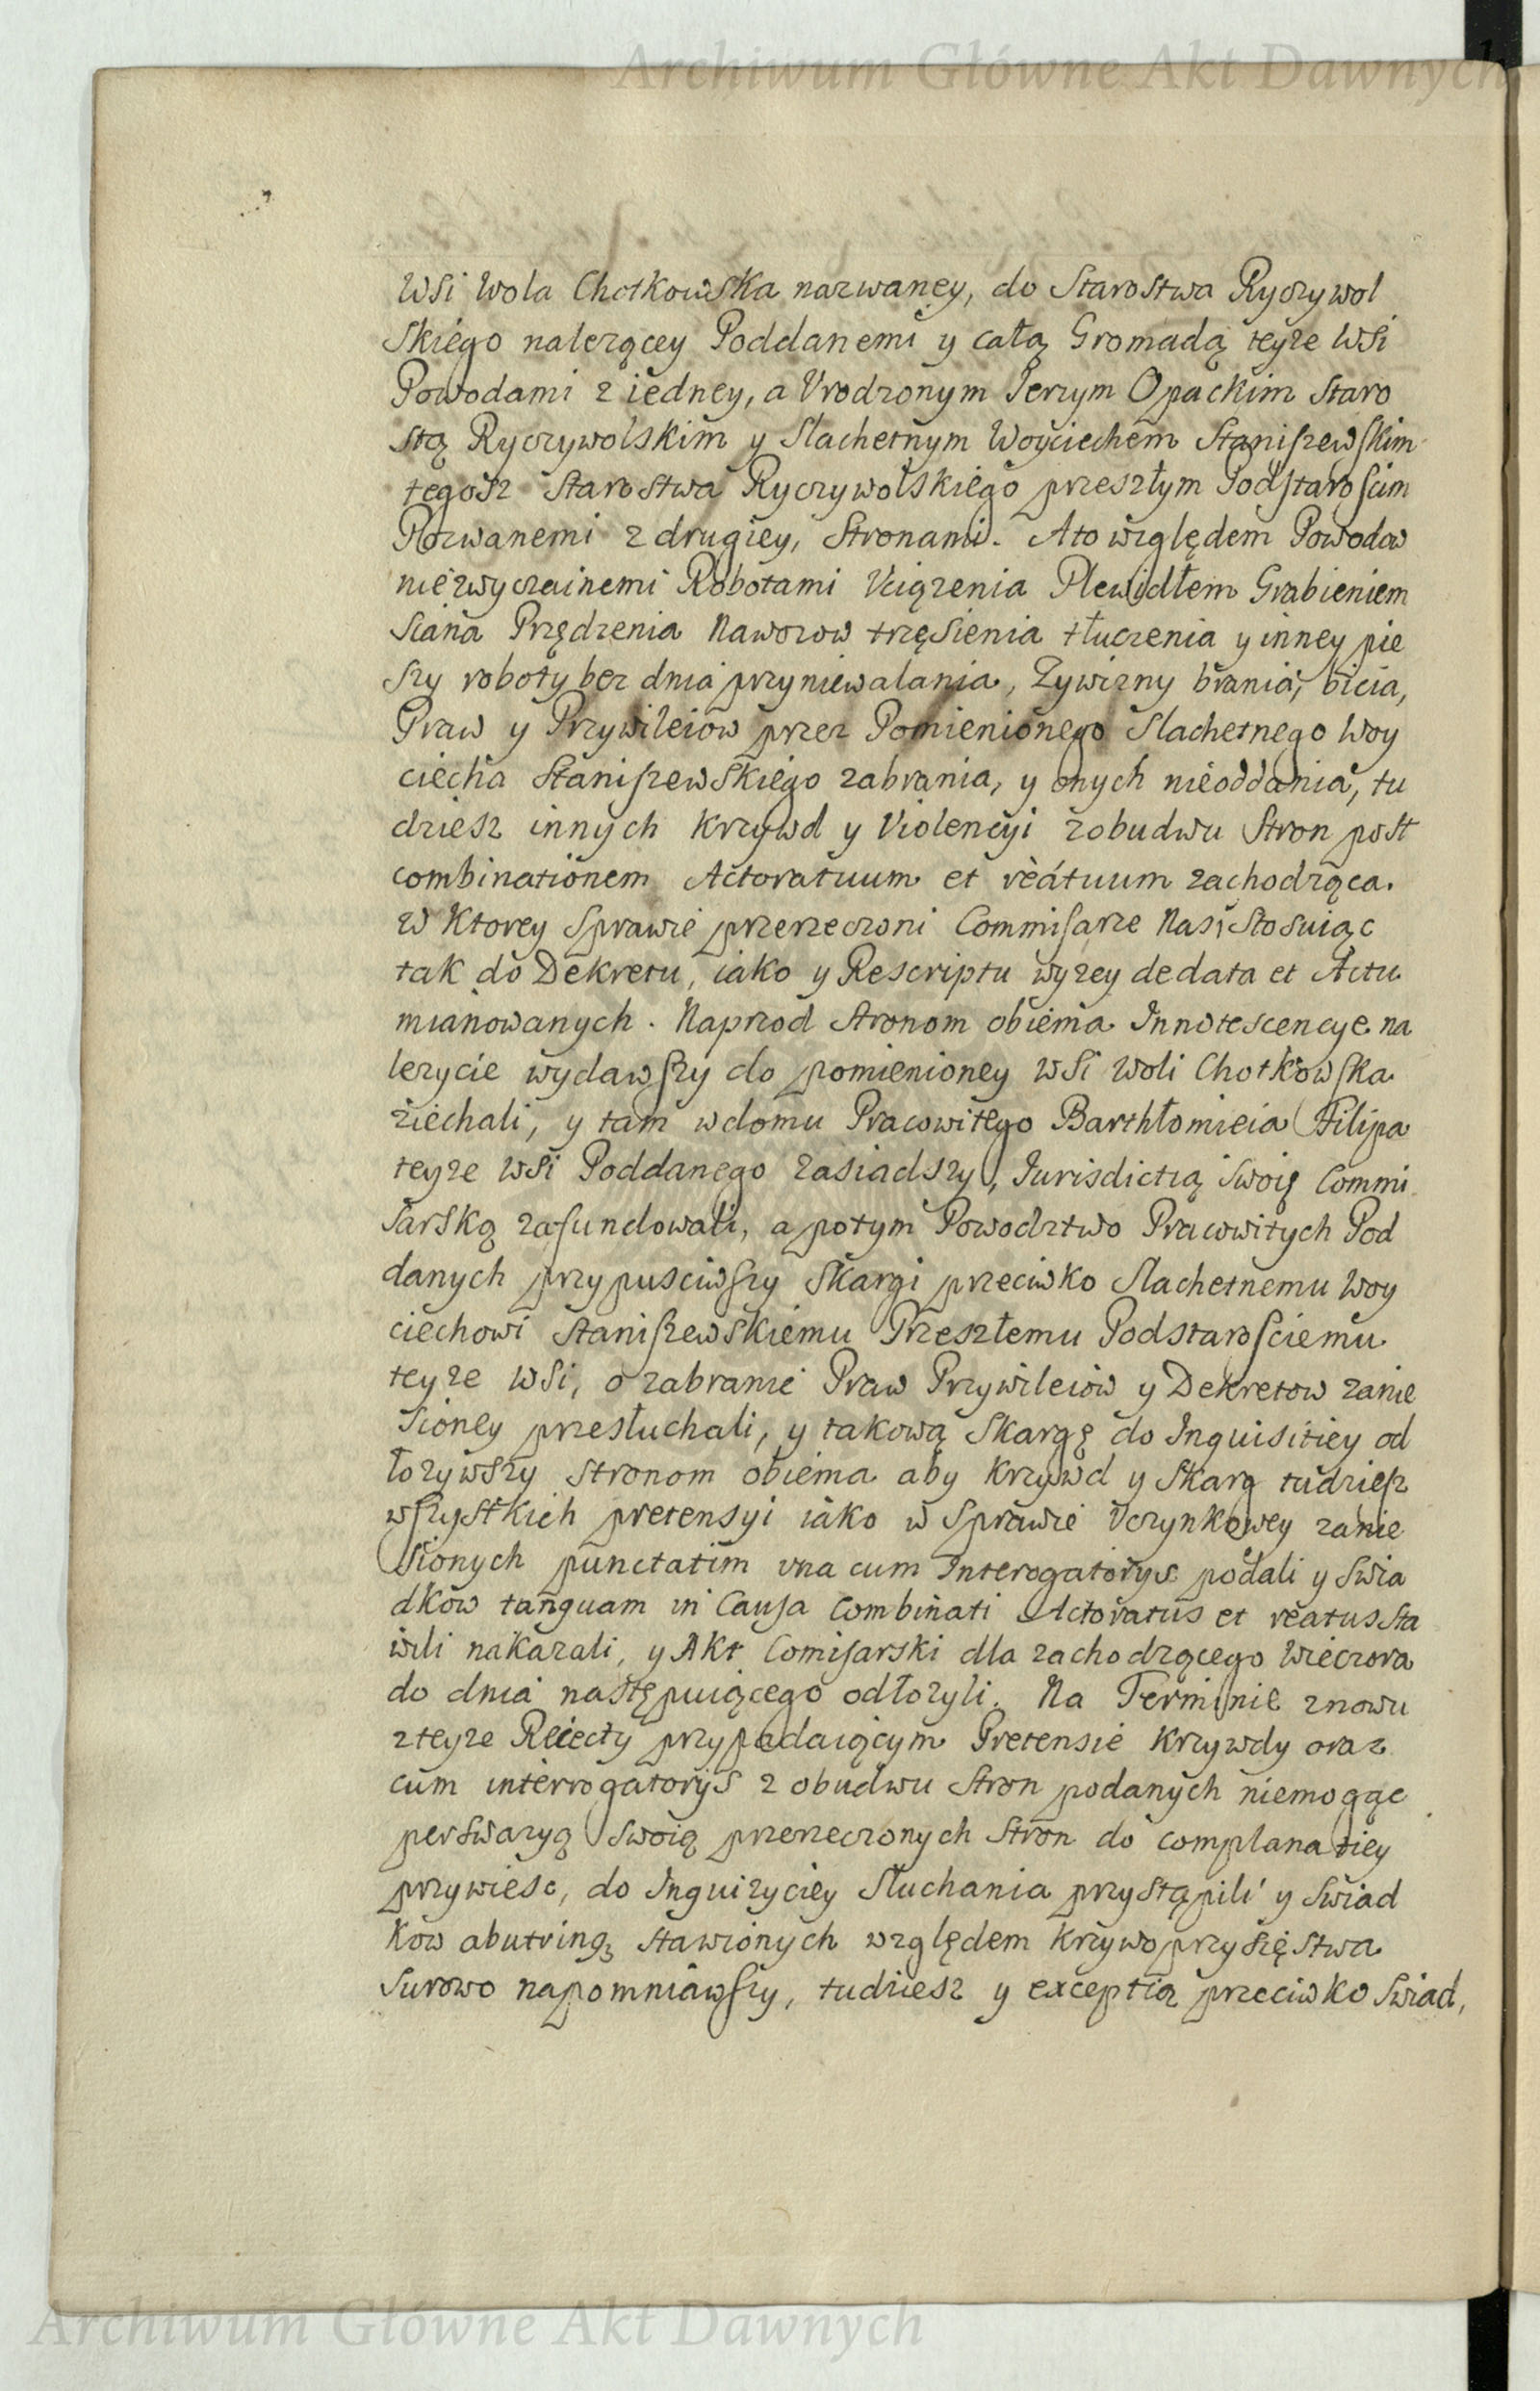 Archiwum Główne Akt Dawnych
Wsi Wola Chotkowska nazwaney, do Starostwa Ryczywol
skiego nalezącey Poddanemi y całą Gromadą teyze Wsi
Powodami z iedney, a Vrodzonym Jerzym Opackim Staro
stą Ryczywolskim y Slachetnym Woyciechem Staniszewskim
tegosz Starostwa Ryczywolskiego przeszłym Podstaroscim
Pozwanemi z drugiey, Stronami. Ato względem Powodow
niezwyczainemi Robotami Vciązenia Plewidłem Grabieniem
Siana Przędzenia Nawozow trzęsienia tłuczenia y inney pie
szy roboty bez dnia przyniewalania, Zywizny brania, bicia,
Praw y Przywileiow przez Pomienionego Slachetnego Woy
ciecha Staniszewskiego zabrania, y onych nieoddania, tu
dziesz innych Krzywd y Violencyi zobudwu Stron post
combinationem Actoratuum et reátuum zachodząca.
w Ktorey Sprawie przerzeczoni Commisarze Nasi Stosuiąc
tak do Dekretu, iako y Rescriptu wyzey de data et Actu
mianowanych. Naprzod Stronom obiema Innotescencye na
lezycie wydawszy do pomienioney Wsi Woli Chotkowska
ziechali, y tam wdomu Pracowitego Barthłomieia Filipa
teyze Wsi Poddanego Zasiadszy, Jurisdictią Swoię Commi
sarską zafundowali, a potym Powodztwo Pracowitych Pod
danych przypusciwszy Skargi przeciwko Slachetnemu Woy
ciechowi Staniszewskiemu Przeszłemu Podstarosciemu
teyze Wsi, o zabranie Praw Przywileiow y Dekretow zanie
sioney przesłuchali, y takową Skargę do Inquisitiey od
łozywszy Stronom obiema aby Krzywd y Skarg tudziesz
wszystkich pretensyi iako w Sprawie Vczynkowey zanie
sionych punctatim vna cum Interogatorys podali y Swia
dkow tanquam in Causa Combinati Actoratus et reatus Sta
wili nakazali, y Akt Comisarski dla zachodzącego Wieczora
do dnia następuiącego odłozyli. Na Terminie znowu
zteyze Reiecty przypadaiącym Pretensie Krzywdy oraz
cum interrogatorijs z obudwu Stron podanych niemogąc
perswazyą Swoią przerzeczonych Stron do complanatiey
przywiesc, do Inquizyciey Słuchania przystąpili y Swiad
kow abutrinq3 stawionych względem Krzywoprzysięstwa
Surowo napomniawszy, tudziesz y exceptią przeciwko Swiad,
Archiwum Główne Akt Dawnych